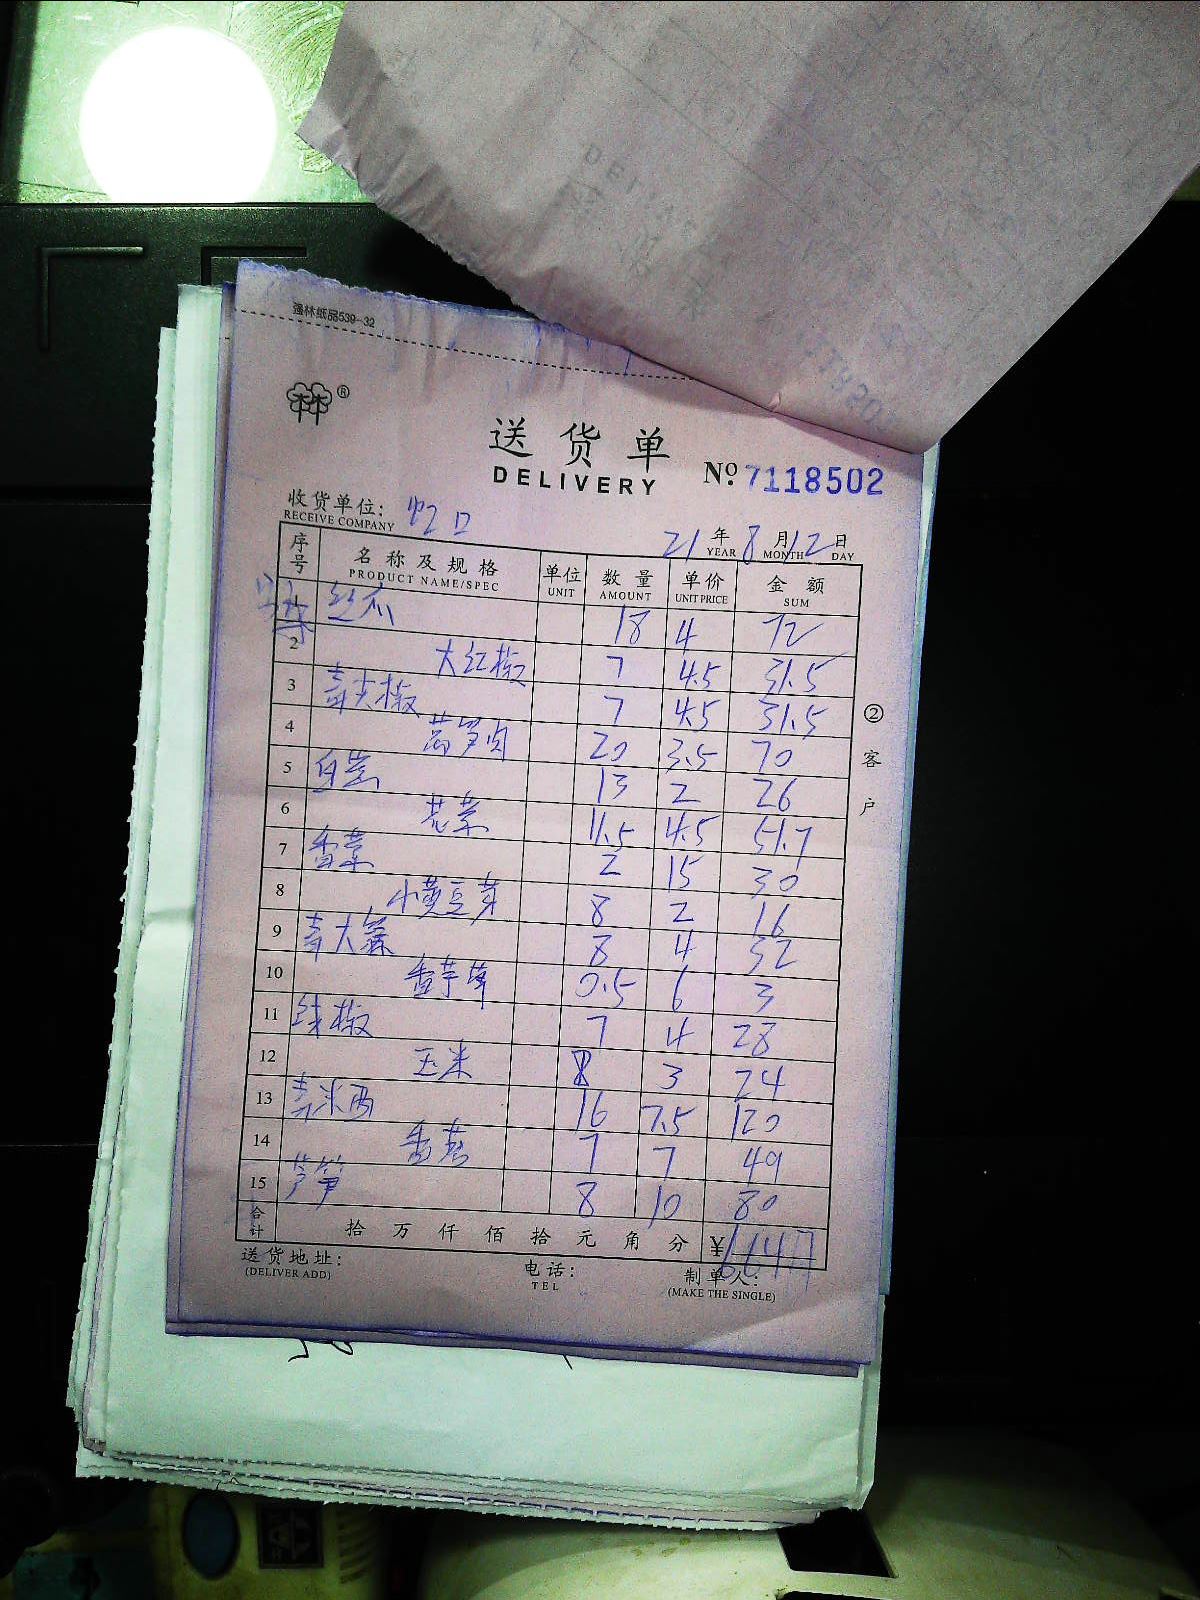 强林纸品539-32
林®
送货单
DELIVERY
No. 7118502
收货单位:
RECEIVE COMPANY
21年8月12日
YEAR MONTH DAY
序号 名称及规格 单位 数量 单价 金额
PRODUCT NAME/SPEC UNIT AMOUNT UNIT PRICE SUM
1 丝瓜 18 4 72
2 大红椒 7 4.5 31.5
3 青尖椒 7 4.5 31.5
4 莴笋肉 20 3.5 70
5 白菜 13 2 26
6 苋菜 11.5 4.5 51.7
7 香菜 2 15 30
8 小黄豆芽 8 2 16
9 青大蒜 8 4 32
10 0.5 6 3
11 线椒 7 4 28
12 玉米 8 3 24
13 青米西 16 7.5 120
14 香菇 7 7 49
15 芦笋 8 10 80
合计 拾万仟佰拾元角分 ¥
送货地址: 电话: 制单人:
(DELIVER ADD) TEL (MAKE THE SINGLE)
②客户